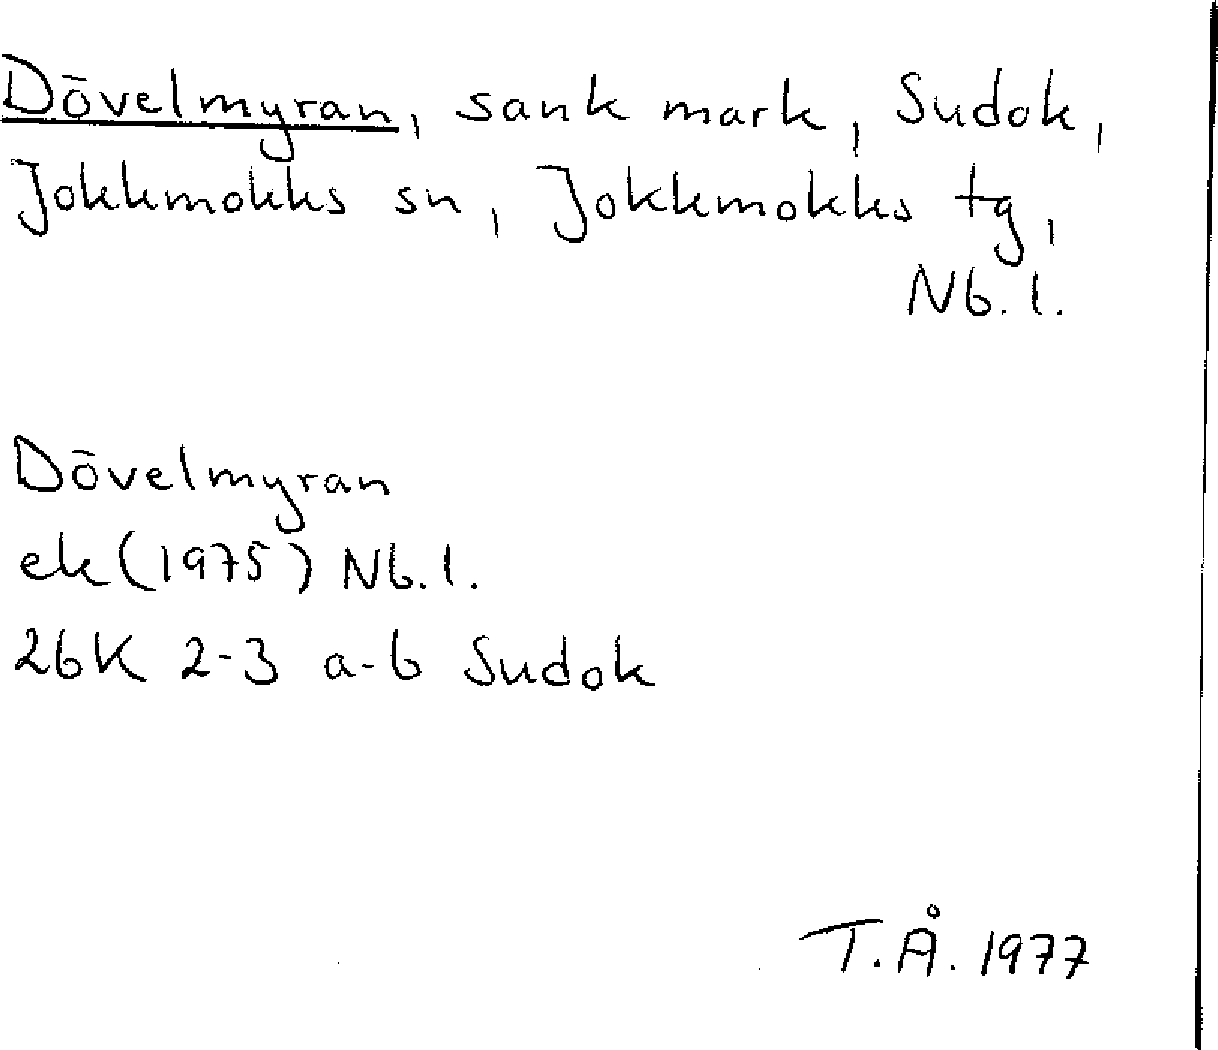 Dövelmyran, sank mark, Sudok,
Jokkmokks sn, Jokkmokks tg,
Nb. l.
Dövelmyran
ek (1975) Nb. l.
26K 2-3 a-b Sudok
T.Å. 1977